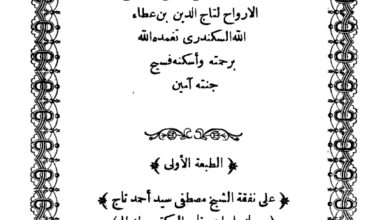 الارواح لتاج الدين بن عطاء
الله السكندرى تغمده الله
برحمته وأسكنه فسيح
جنته آمين
﴿ الطبعة الأولى ﴾
﴿ على نفقة الشيخ مصطفى سيد أحمد تاج ﴾